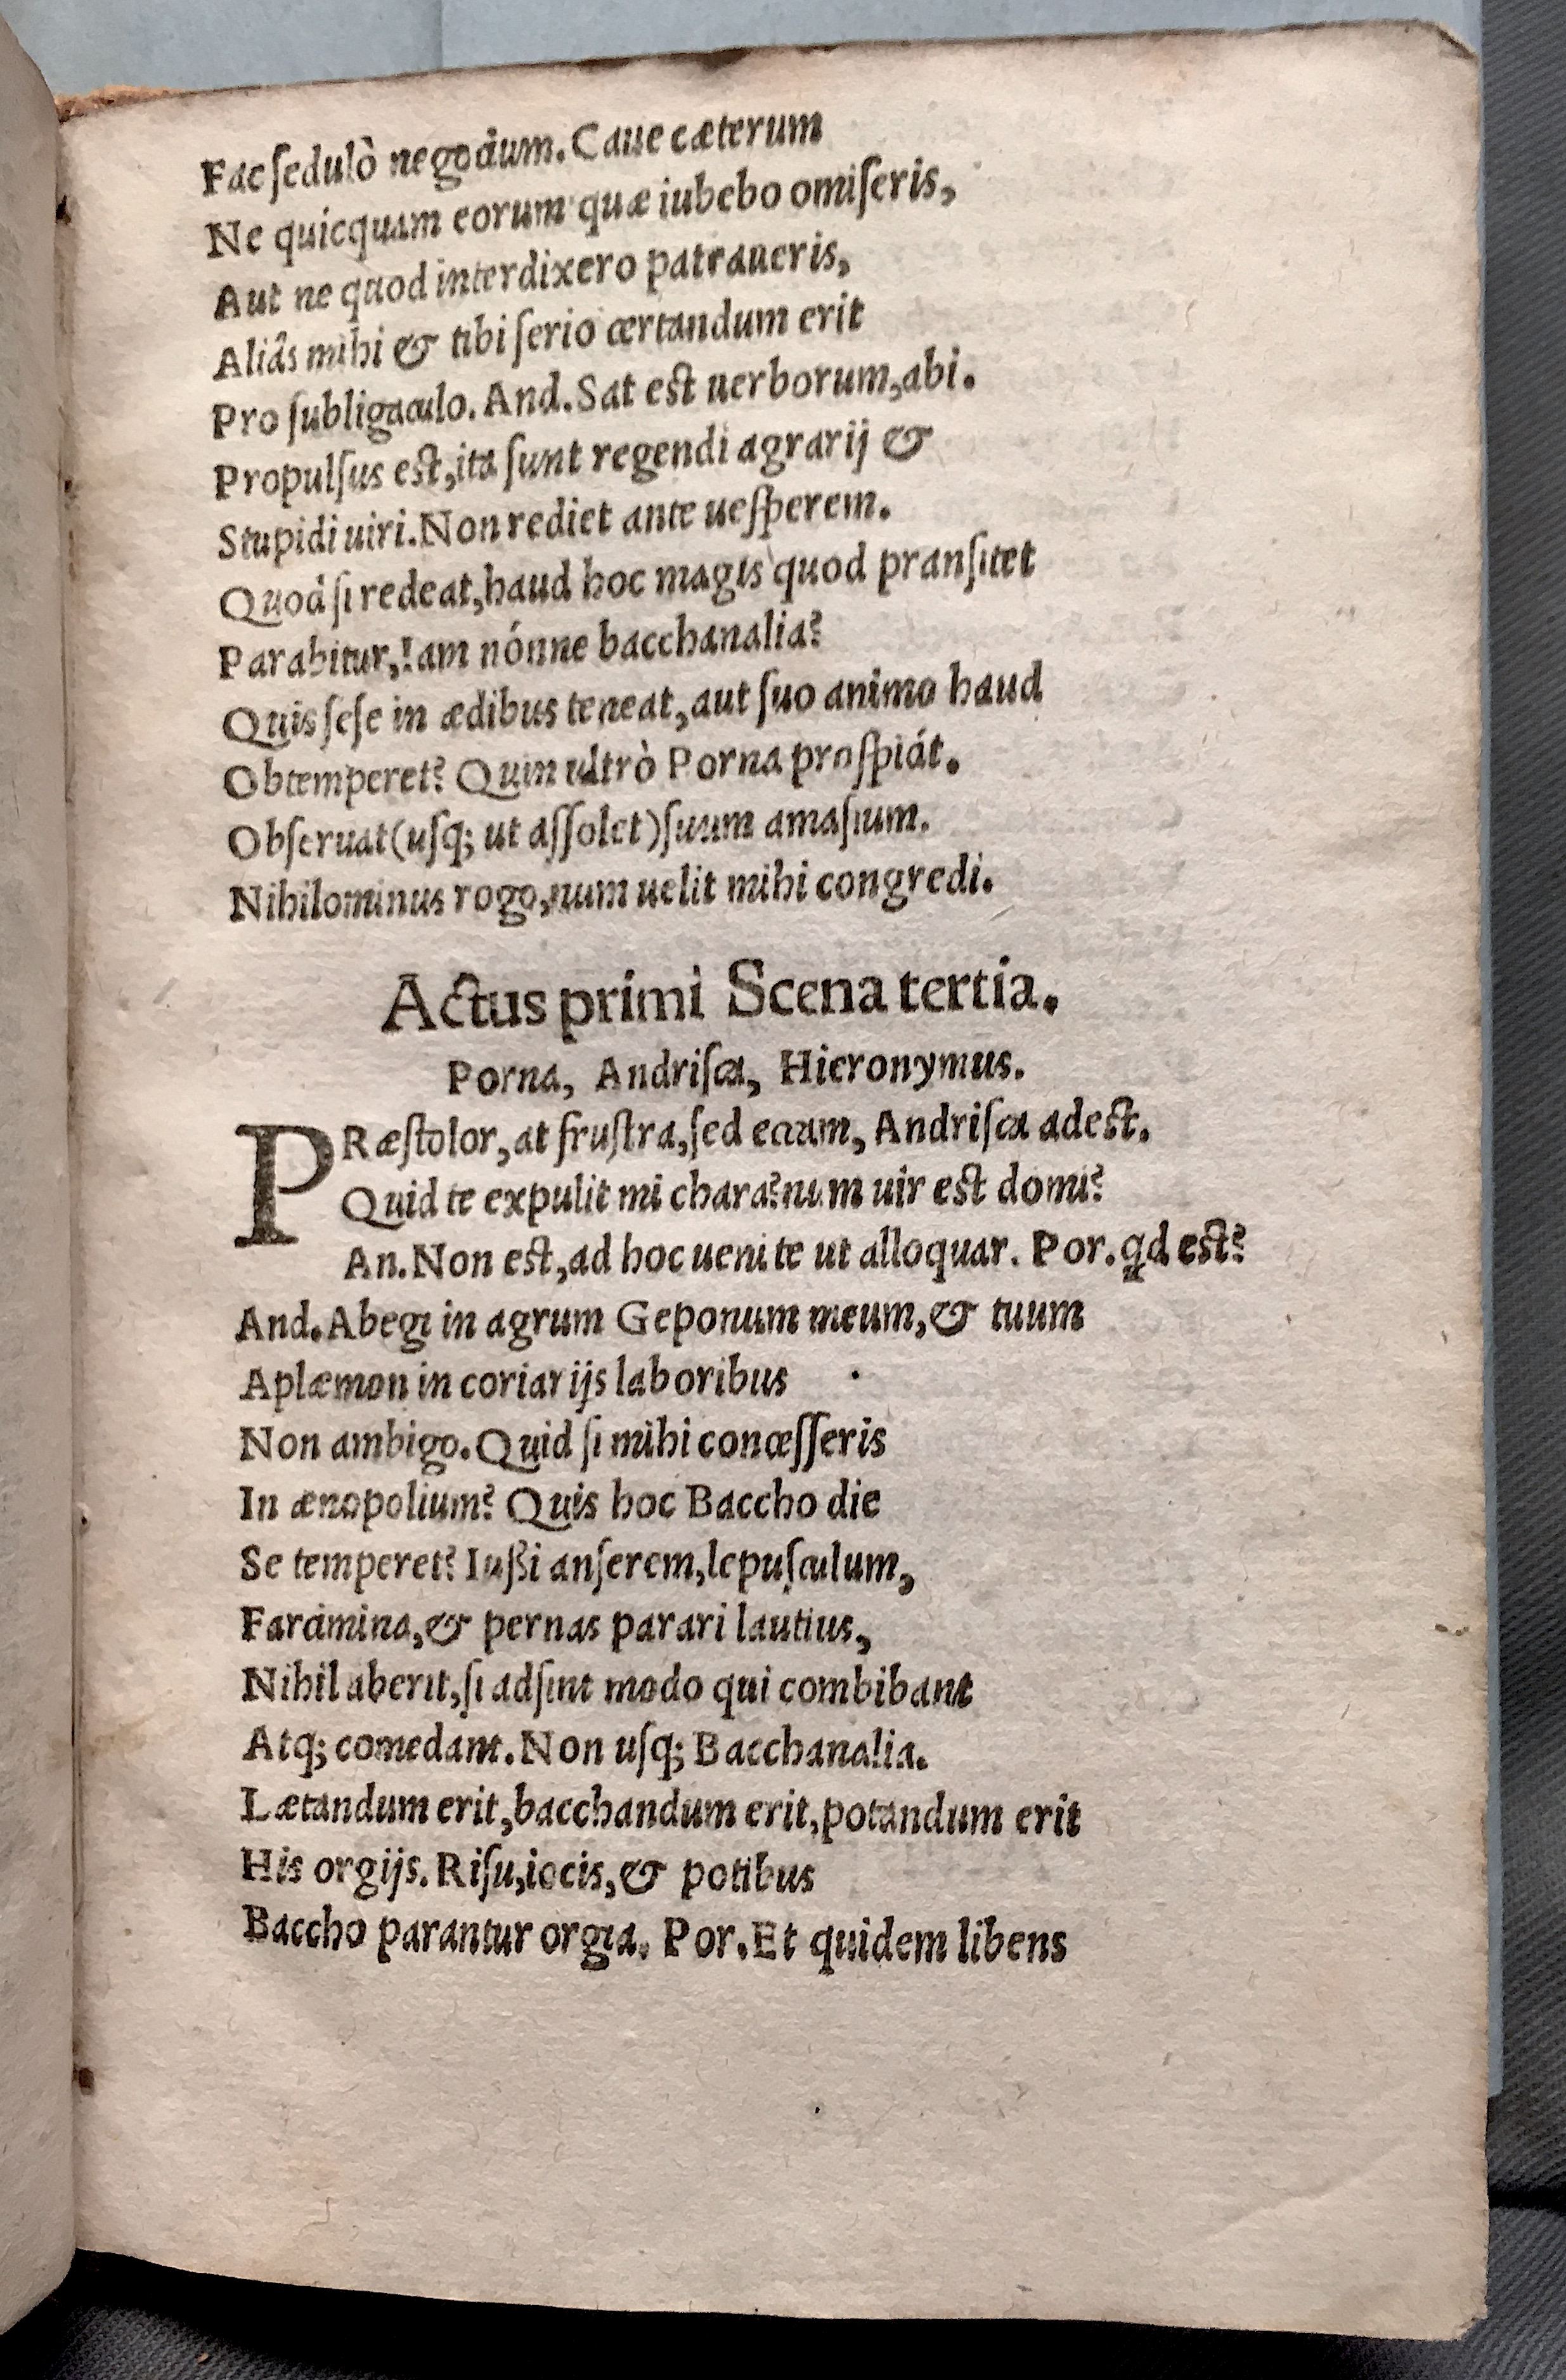 Fac ſedulò negocium. Caue cæterum
Ne quicquam eorum quæ iubebo omiſeris,
Aut ne quod interdixero patraueris,
Aliâs mihi & tibi ſerio certandum erit
Pro ſubligaculo. And. Sat est uerborum, abi.
Propulſus est, ita ſunt regendi agrarij &
Stupidi uiri. Non rediet ante ueſperem.
Quod ſi redeat, haud hoc magis quod pranſitet
Parabitur, Iam nónne bacchanalia?
Quis ſeſe in ædibus teneat, aut ſuo animo haud
Obtemperet? Quin ultrò Porna proſpicit.
Obſeruat (uſq; ut aſſolet) ſuum amaſium.
Nihilominus rogo, num uelit mihi congredi.
Actus primi Scena tertia.
Porna, Andriſca, Hieronymus.
PRæſtolor, at fruſtra, ſed eccam, Andriſca adest.
Quid te expulit mi chara? num uir est domi?
An. Non est, ad hoc ueni te ut alloquar. Por. qd est?
And. Abegi in agrum Geponum meum, & tuum
Aplæmon in coriarijs laboribus
Non ambigo. Quid ſi mihi conceſſeris
In ænopolium? Quis hoc Baccho die
Se temperet? Iußi anſerem, lepuſculum,
Farcimina, & pernas parari lautius,
Nihil aberit, ſi adſint modo qui combibant
Atq; comedant. Non uſq; Bacchanalia.
Lætandum erit, bacchandum erit, potandum erit
His orgijs. Riſu, iocis, & potibus
Baccho parantur orgia. Por. Et quidem libens